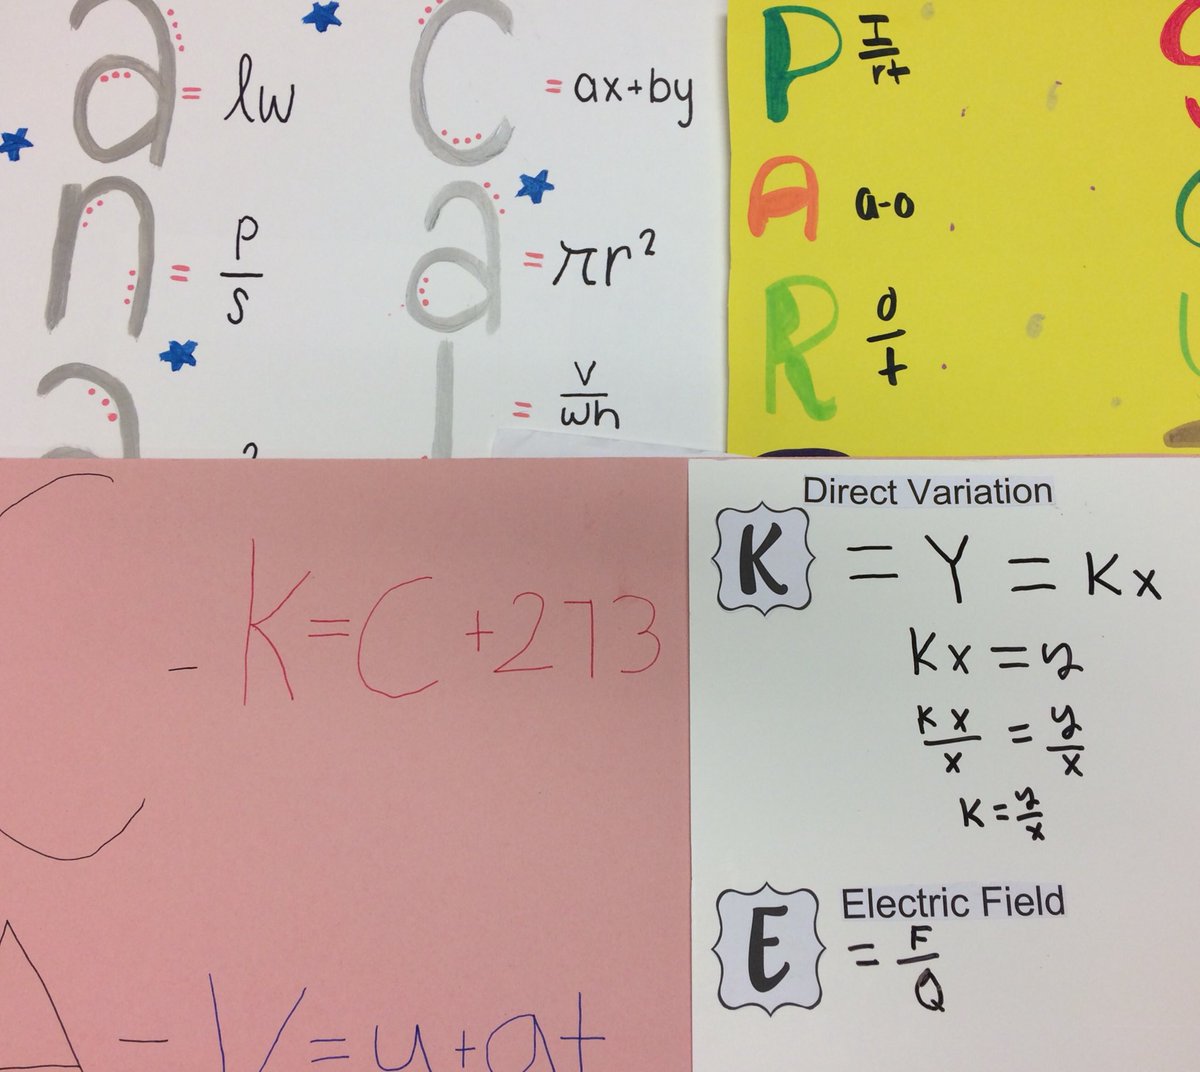 a = lw
n = P/S
a
2
C = ax+by
a = πr²
l = V/wh
P I/rt
A a-o
R d/t
C - K=C+273
A - V=u+at
Direct Variation
K = Y = Kx
Kx = y
Kx/x = y/x
K = y/x
Electric Field
E = F/Q